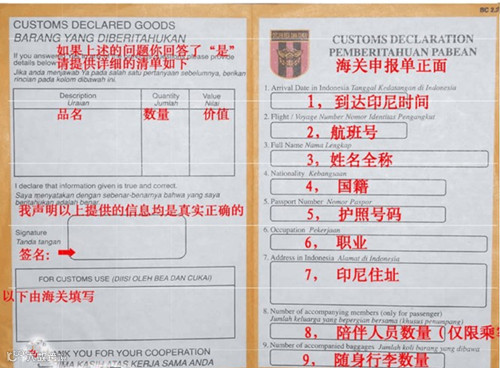 BC 2.2
CUSTOMS DECLARED GOODS
BARANG YANG DIBERITAHUKAN
如果上述的问题你回答了“是”
请提供详细的清单如下
details below
Jika anda menjawab Ya pada salah satu pertanyaan sebelumnya, berikan
rincian pada kolom dibawah ini.
Description Quantity Value
Uraian Jumlah Nilai
品名 数量 价值
I declare that information given is true and correct.
Saya menyatakan dengan sebenar-benarnya bahwa yang saya
beritahukan adalah benar
我声明以上提供的信息均是真实正确的
Signature
Tanda tangan
签名:
FOR CUSTOMS USE (DIISI OLEH BEA DAN CUKAI)
以下由海关填写
THANK YOU FOR YOUR COOPERATION
TERIMA KASIH ATAS KERJA SAMA ANDA
CUSTOMS DECLARATION
PEMBERITAHUAN PABEAN
海关申报单正面
1. Arrival Date in Indonesia Tanggal Kedatangan di Indonesia
1, 到达印尼时间
2. Flight / Voyage Number Nomor Identitas Pengangkut
2, 航班号
3. Full Name Nama Lengkap
3, 姓名全称
4. Nationality Kebangsaan
4, 国籍
5. Passport Number Nomor Paspor
5, 护照号码
6. Occupation Pekerjaan
6, 职业
7. Address in Indonesia Alamat di Indonesia
7, 印尼住址
8. Number of accompanying members (only for passenger)
Jumlah keluarga yang bepergian bersama (khusus penumpang)
8, 陪伴人员数量(仅限乘客
9. Number of accompanied baggages Jumlah koli barang yang dibawa
9, 随身行李数量